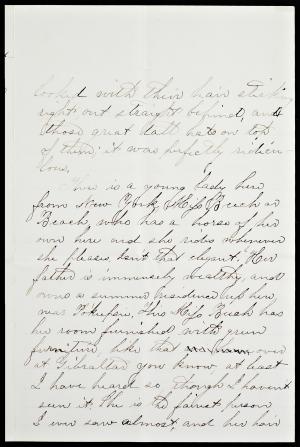 looked with their hair sticking
right out straight behind, and
those great tall hats on top
of them; it was perfectly ridicu-
lous.
There is a young lady here
from New York, Miss Beech or
Beach, who has a horse of her
own here and she rides whenever
she pleases, isn't that elegant. Her
father is immensely wealthy, and
owns a summer residence up here
near Po'keepsie, This Miss Beach has
her room furnished with green
furniture, like that over
at Gibraltar you know, at least
I have heard so, though I haven't
seen it. She is the fairest person
I ever saw almost, and her hair